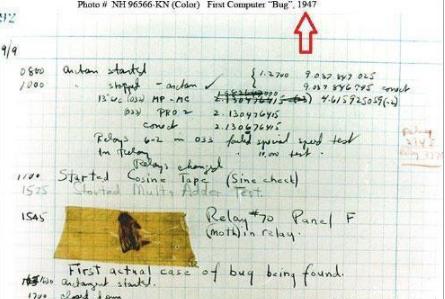 Photo # NH 96566-KN (Color) First Computer "Bug", 1947
9/9
0800 antan started
1000 " stopped - antan ✓ { 1.2700 9.037 847 025
9.037 846 995 correct
13"uc (032) MP-MC 2.130476415 4.615925059(-2)
(033) PRO 2 2.130476415
correct 2.130676415
Relays 6-2 in 033 failed special speed test
in Relay " 10.000 test.
Relays changed
1100 Started Cosine Tape (Sine check)
1525 Started Multi Adder Test.
1545 Relay #70 Panel F
(moth) in relay.
First actual case of bug being found.
antangent started.
1700 closed down